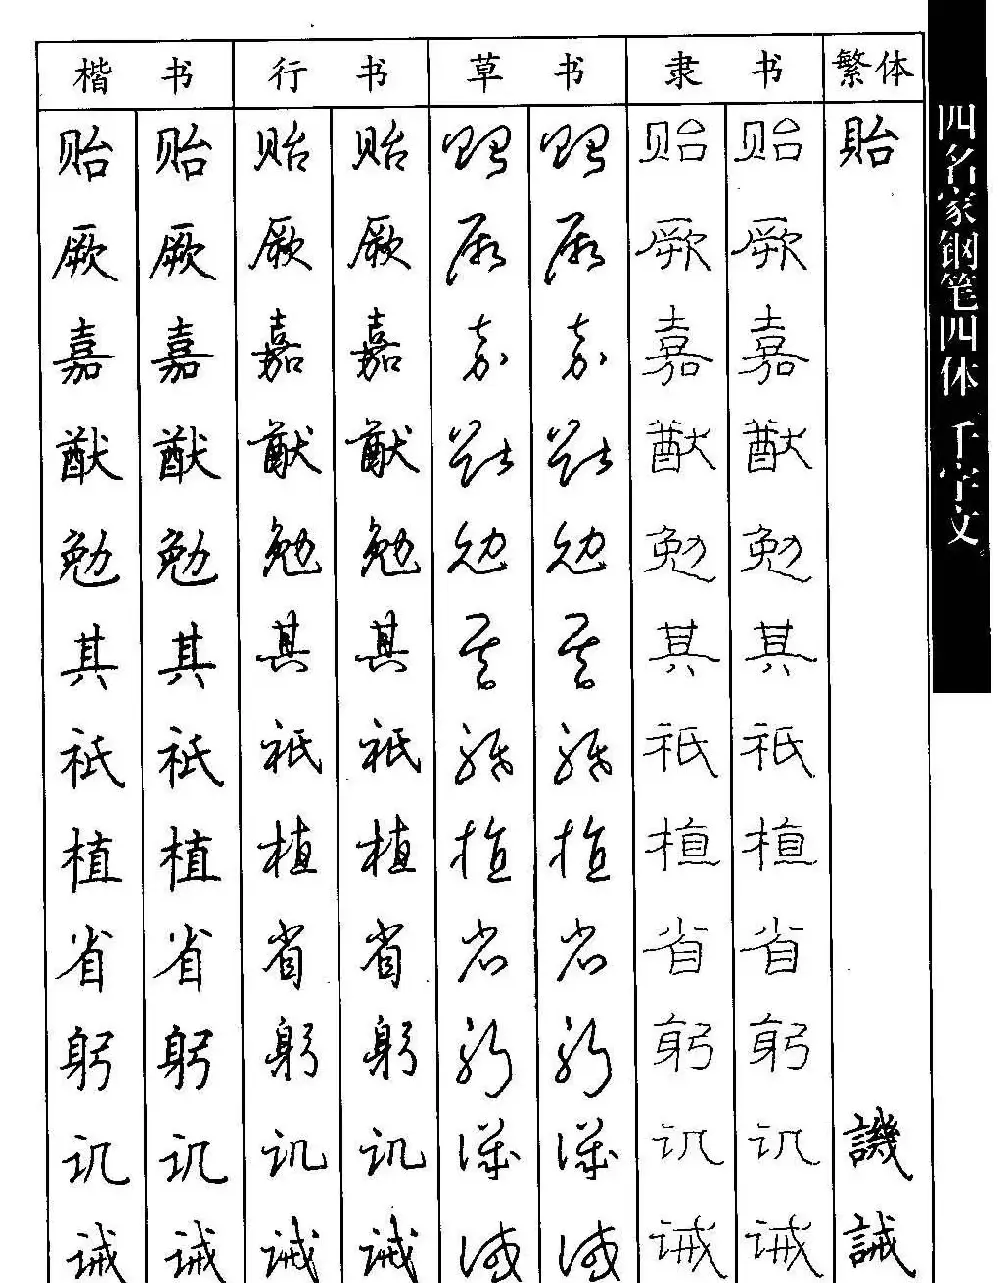 楷书 行书 草书 隶书 繁体
贻 贻 贻 贻 贻 贻 贻 贻 貽
厥 厥 厥 厥 厥 厥 厥 厥
嘉 嘉 嘉 嘉 嘉 嘉 嘉 嘉
猷 猷 猷 猷 猷 猷 猷 猷
勉 勉 勉 勉 勉 勉 勉 勉
其 其 其 其 其 其 其 其
祗 祗 祗 祗 祗 祗 祗 祗
植 植 植 植 植 植 植 植
省 省 省 省 省 省 省 省
躬 躬 躬 躬 躬 躬 躬 躬
讥 讥 讥 讥 讥 讥 讥 讥 譏
诫 诫 诫 诫 诫 诫 诫 诫 誡
四名家钢笔四体千字文